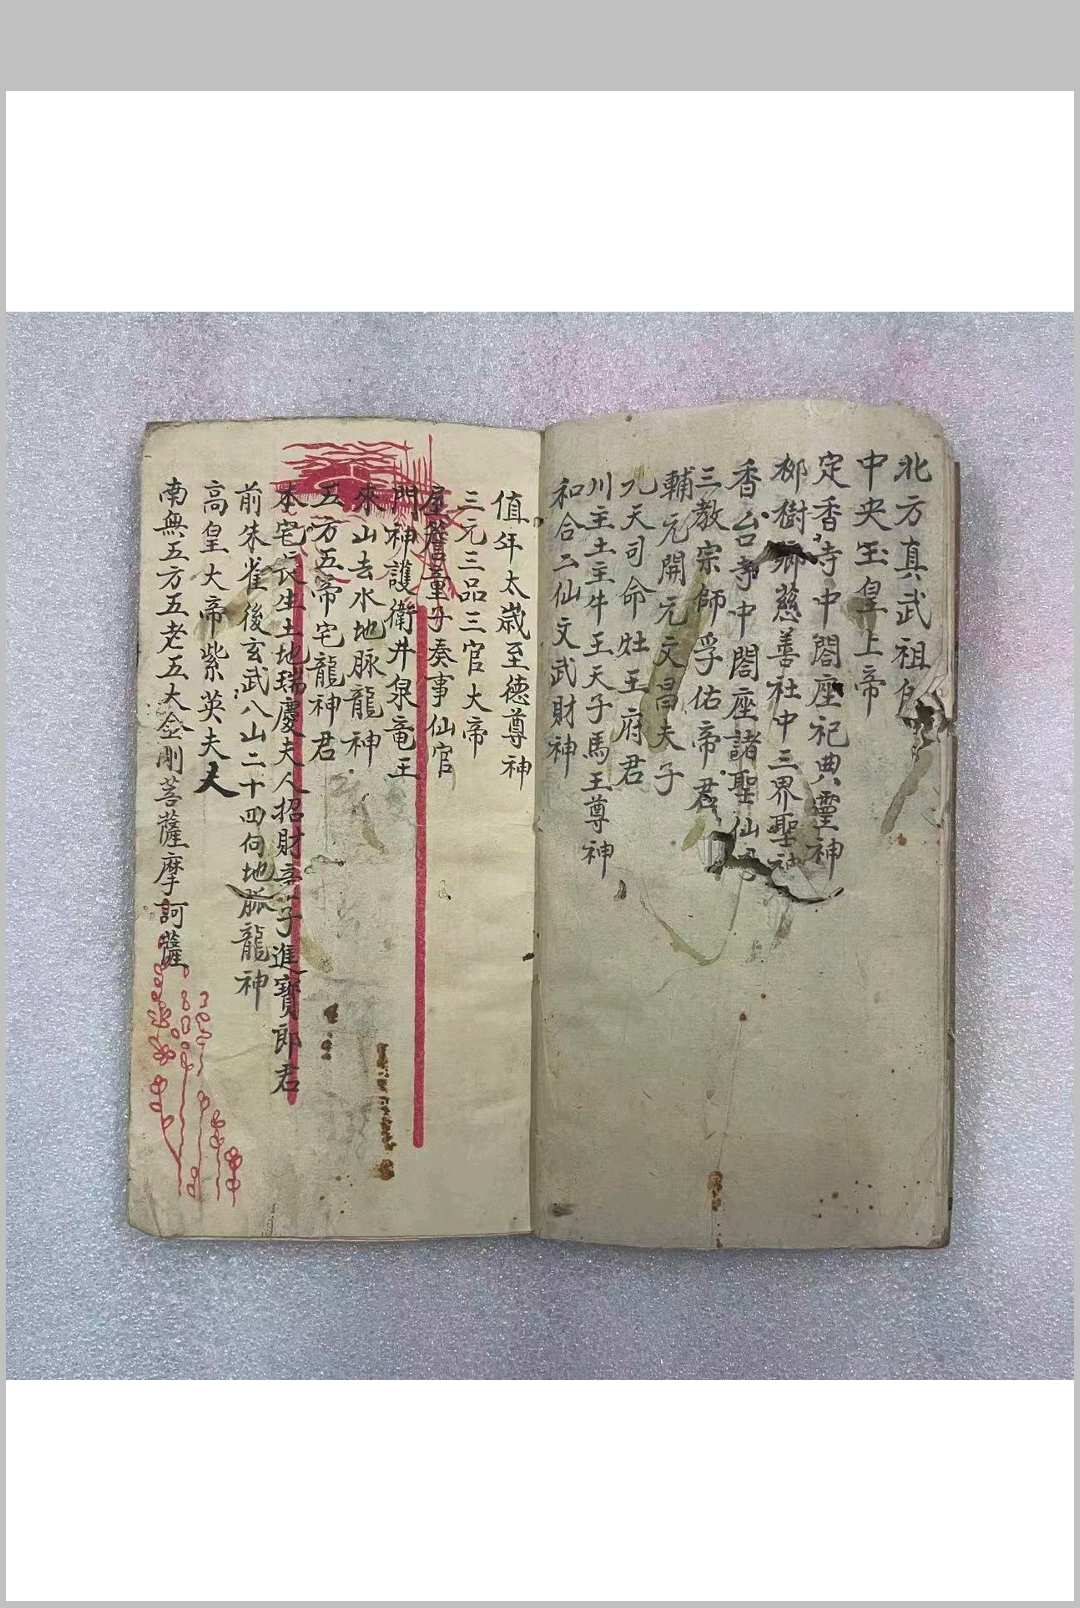 北方真武祖
中央玉皇上帝
定香寺中閤座祀典靈神
柳樹鄉慈善社中三界聖神
香台寺中閤座諸聖仙
三教宗師孚佑帝君
輔元開元文昌夫子
九天司命灶王府君
川主土主牛王天子馬王尊神
和合二仙文武財神
值年太歲至德尊神
三元三品三官大帝
屋簷童子奏事仙官
門神護衛井泉竜王
來山去水地脉龍神
五方五帝宅龍神君
本宅長生土地瑞慶夫人招財童子進寶郎君
前朱雀後玄武八山二十四向地脈龍神
高皇大帝紫英夫人
南無五方五老五大金剛菩薩摩訶薩